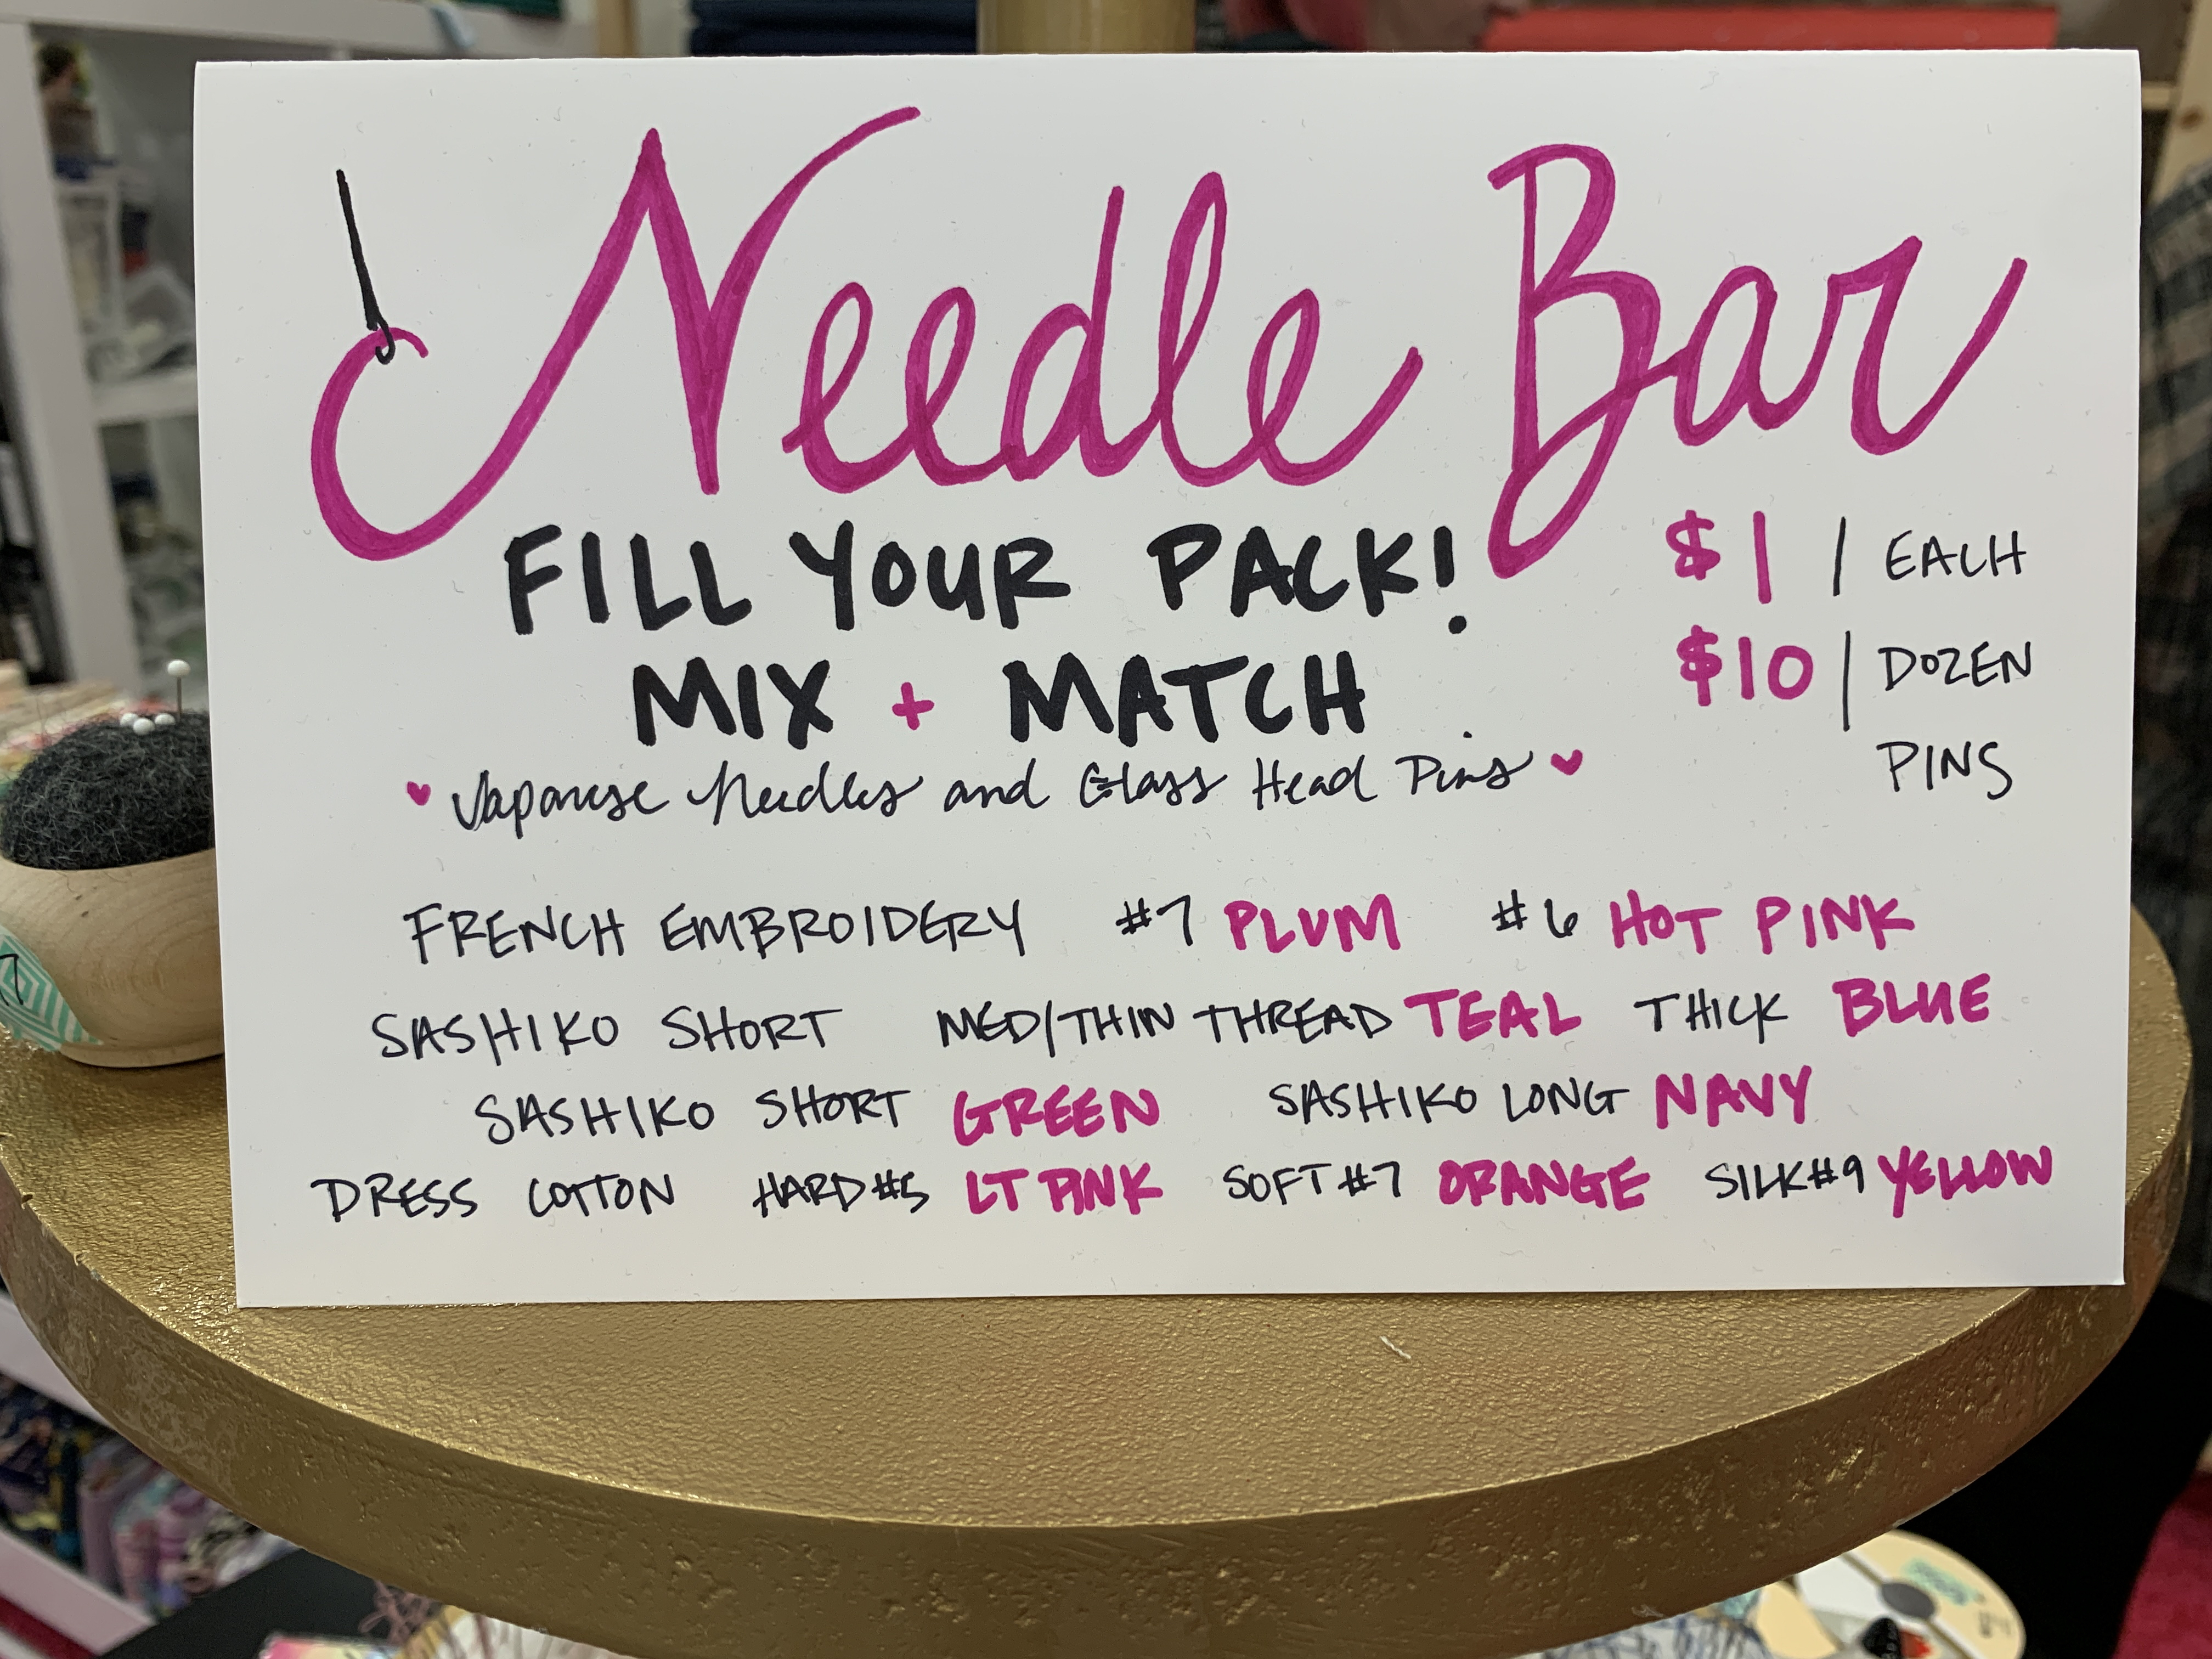 Needle Bar
FILL YOUR PACK!
MIX + MATCH
$1 / EACH
$10 / DOZEN
PINS
♥ Japanese Needles and Glass Head Pins ♥
FRENCH EMBROIDERY #7 PLUM #6 HOT PINK
SASHIKO SHORT MED/THIN THREAD TEAL THICK BLUE
SASHIKO SHORT GREEN SASHIKO LONG NAVY
DRESS COTTON HARD #5 LT PINK SOFT #7 ORANGE SILK #9 YELLOW
7